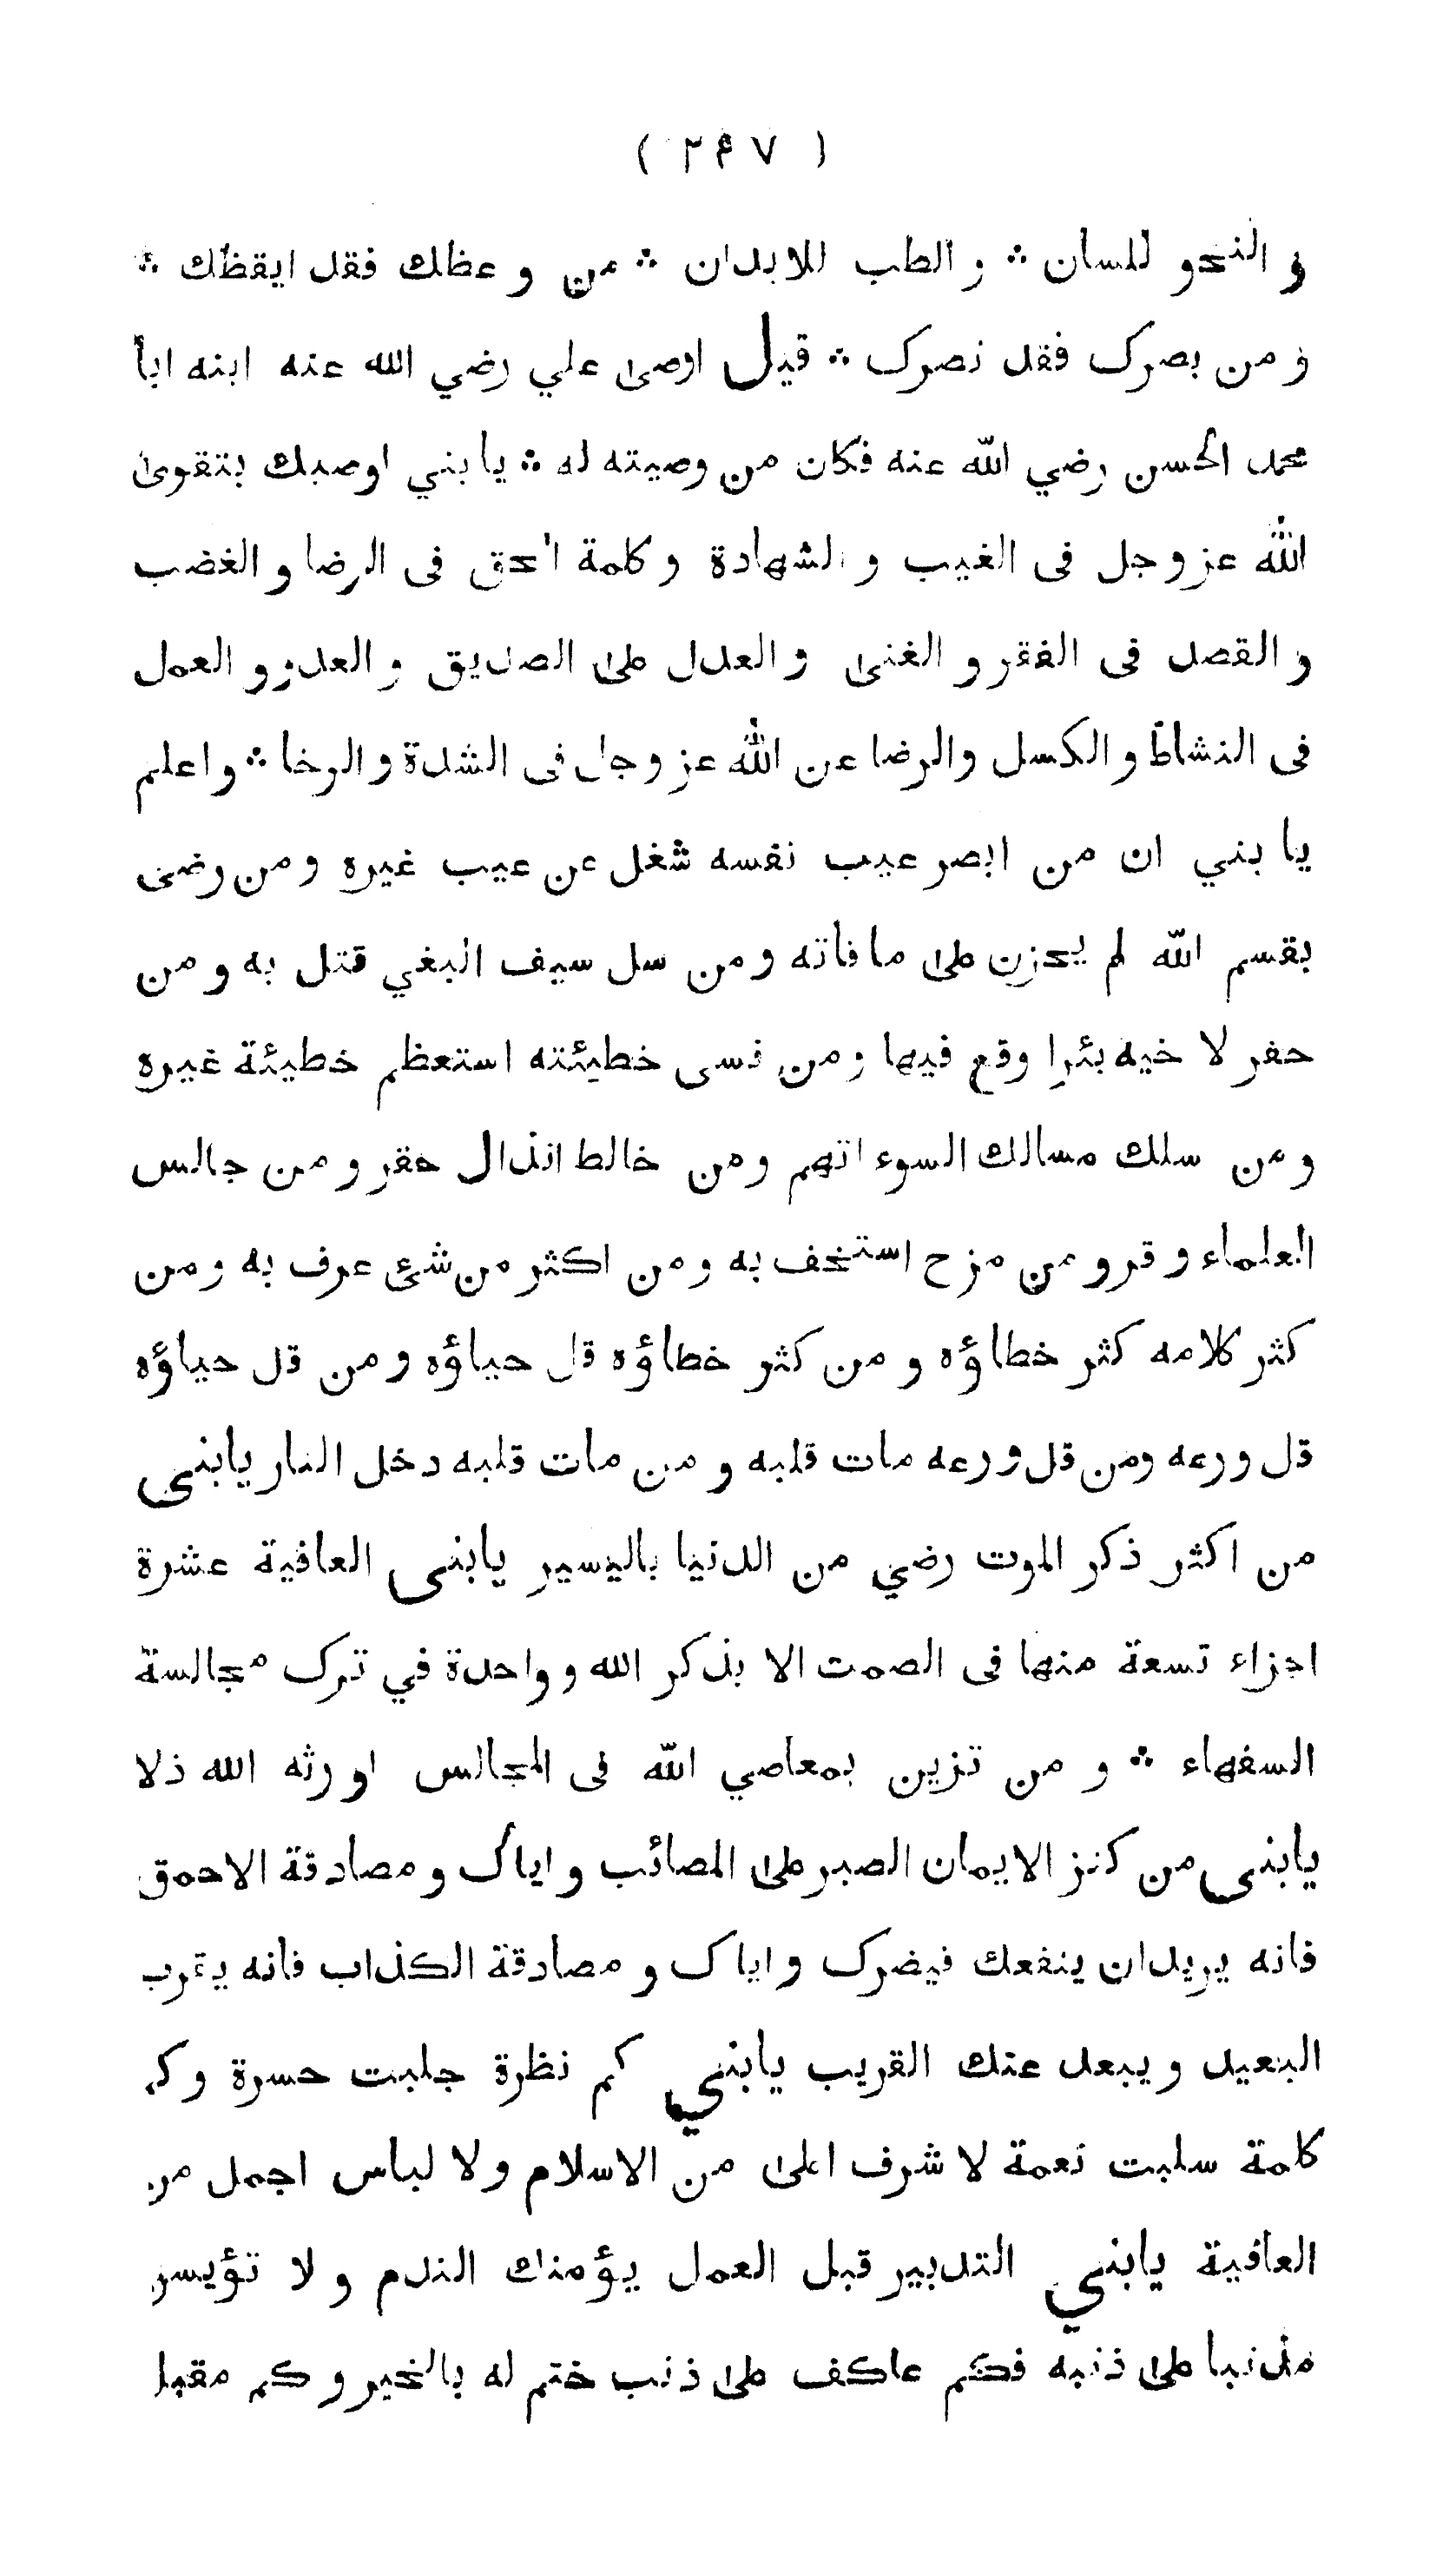 ( ٢٤٧ )
و النحو للسان ؞ و الطب للابدان ؞ من وعظك فقد ايقظك ؞
و من بصرك فقد نصرك ؞ قيل اوصى علي رضي الله عنه ابنه ابا
محمد الحسن رضي الله عنه فكان من وصيته له ؞ يا بني اوصيك بتقوى
الله عز وجل فى الغيب و الشهادة و كلمة الحق فى الرضا و الغضب
و القصد فى الفقر و الغنى و العدل على الصديق و العدو و العمل
فى النشاط و الكسل والرضا عن الله عز وجل فى الشدة و الرخا ؞ واعلم
يا بني ان من ابصر عيب نفسه شغل عن عيب غيره ومن رضى
بقسم الله لم يحزن على ما فاته ومن سل سيف البغي قتل به ومن
حفر لا خيه بئرا وقع فيها ومن نسى خطيئته استعظم خطيئة غيره
ومن سلك مسالك السوء اتهم ومن خالط انذال حقر ومن جالس
العلماء وقر ومن مزح استخف به ومن اكثر من شئ عرف به ومن
كثر كلامه كثر خطاؤه و من كثر خطاؤه قل حياؤه ومن قل حياؤه
قل ورعه ومن قل ورعه مات قلبه و من مات قلبه دخل النار يابنى
من اكثر ذكر الموت رضي من الدنيا باليسير يابنى العافية عشرة
اجزاء تسعة منها فى الصمت الا بذكر الله و واحدة في ترك مجالسة
السفهاء ؞ و من تزين بمعاصي الله فى المجالس اورثه الله ذلا
يابنى من كنز الايمان الصبر على المصائب و اياك و مصادقة الاحمق
فانه يريد ان ينفعك فيضرك و اياك و مصادقة الكذاب فانه يقرب
البعيد و يبعد عنك القريب يابني كم نظرة جلبت حسرة وكم
كلمة سلبت نعمة لا شرف اعلى من الاسلام ولا لباس اجمل من
العافية يابني التدبير قبل العمل يؤمنك الندم و لا تؤيس
مذنبا على ذنبه فكم عاكف على ذنب ختم له بالخير و كم مقبل